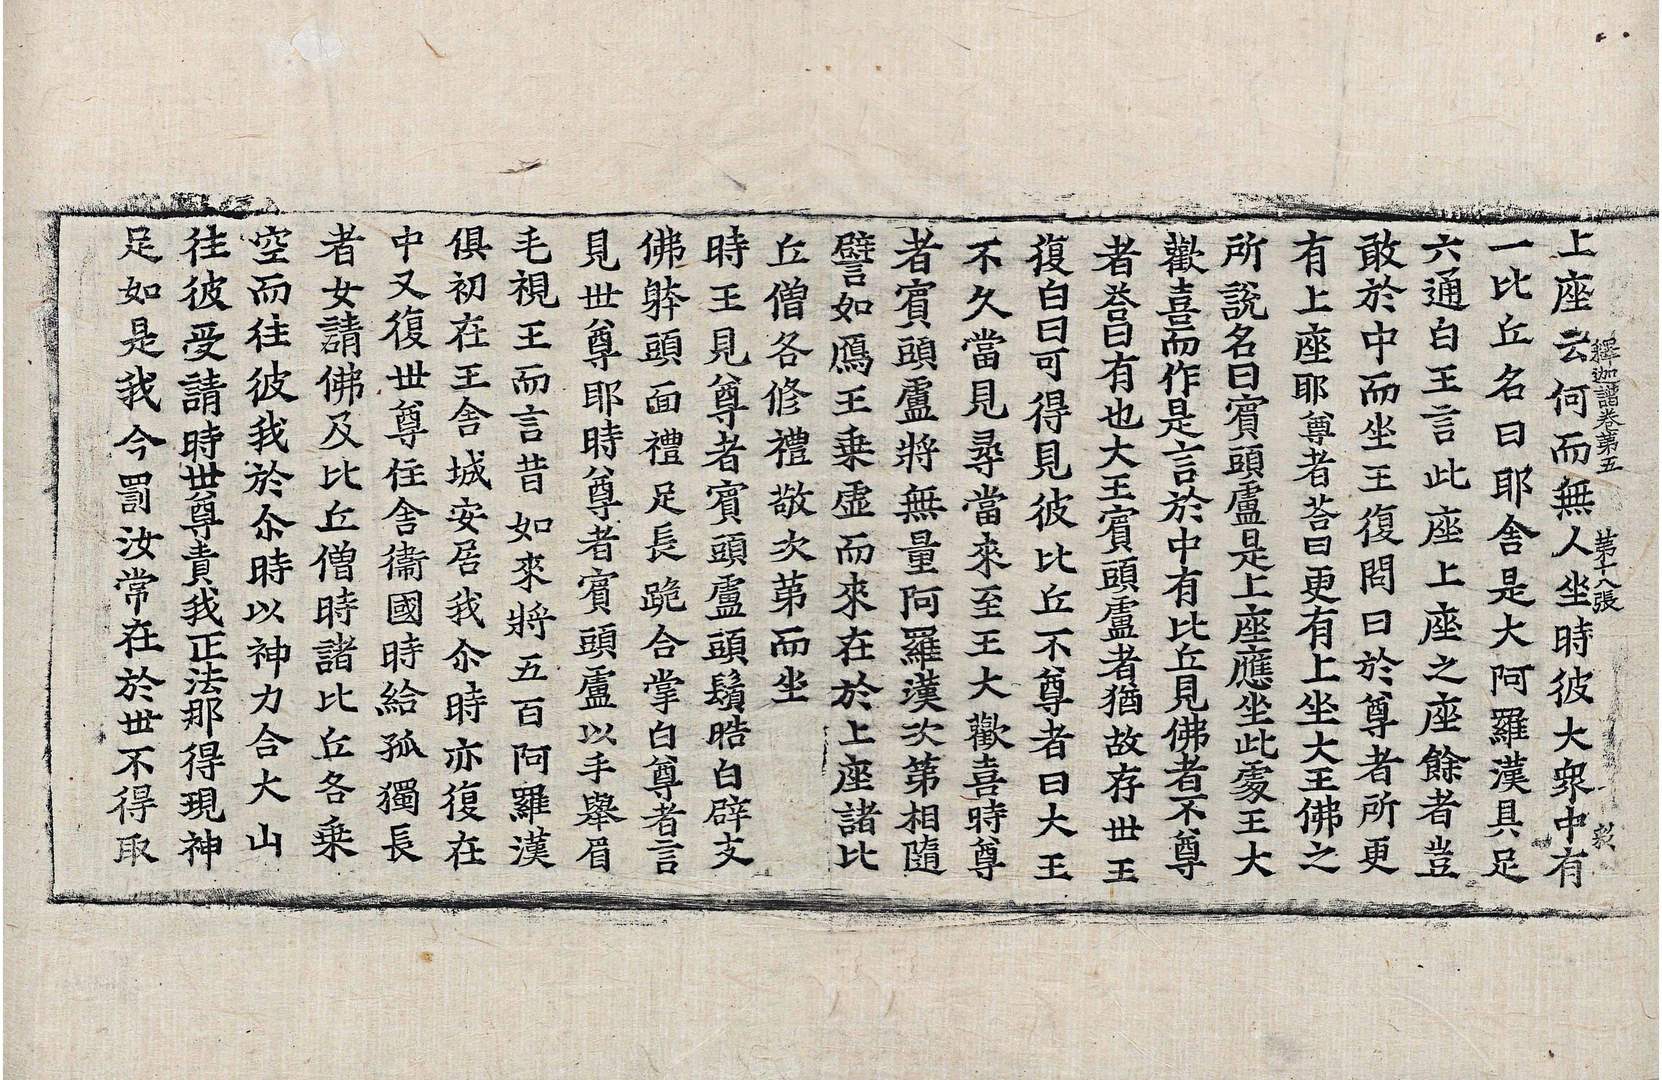 釋迦譜卷第五　第十八張　毅
上座云何而無人坐時彼大衆中有
一比丘名曰耶舍是大阿羅漢具足
六通白王言此座上座之座餘者豈
敢於中而坐王復問曰於尊者所更
有上座耶尊者荅曰更有上坐大王佛之
所說名曰賓頭盧是上座應坐此處王大
歡喜而作是言於中有比丘見佛者不尊
者荅曰有也大王賓頭盧者猶故存世王
復白曰可得見彼比丘不尊者曰大王
不久當見尋當來至王大歡喜時尊
者賓頭盧將無量阿羅漢次第相隨
譬如鴈王乗虛而來在於上座諸比
丘僧各修禮敬次第而坐
時王見尊者賓頭盧頭鬚晧白辟支
佛躰頭面禮足長跪合掌白尊者言
見世尊耶時尊者賓頭盧以手舉眉
毛視王而言昔如來將五百阿羅漢
俱初在王舍城安居我尒時亦復在
中又復世尊住舍衞國時給孤獨長
者女請佛及比丘僧時諸比丘各乗
空而往彼我於尒時以神力合大山
往彼受請時世尊責我正法那得現神
足如是我今罰汝常在於世不得取